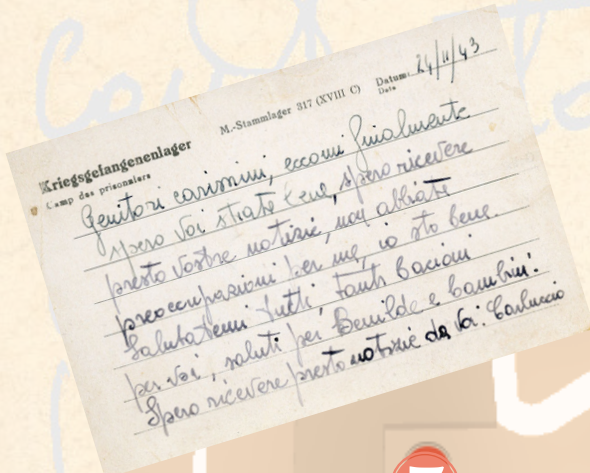 Kriegsgefangenenlager
Camp des prisonniers
M.-Stammlager 317 (XVIII C)
Datum: 24/11/43
Date
Genitori carissimi, eccomi finalmente
spero voi stiate bene, spero ricevere
presto vostre notizie, non abbiate
preoccupazioni per me, io sto bene.
Salutatemi tutti, tanti bacioni
per voi, saluti per Benilde e bambini.
Spero ricevere presto notizie da voi. Carluccio